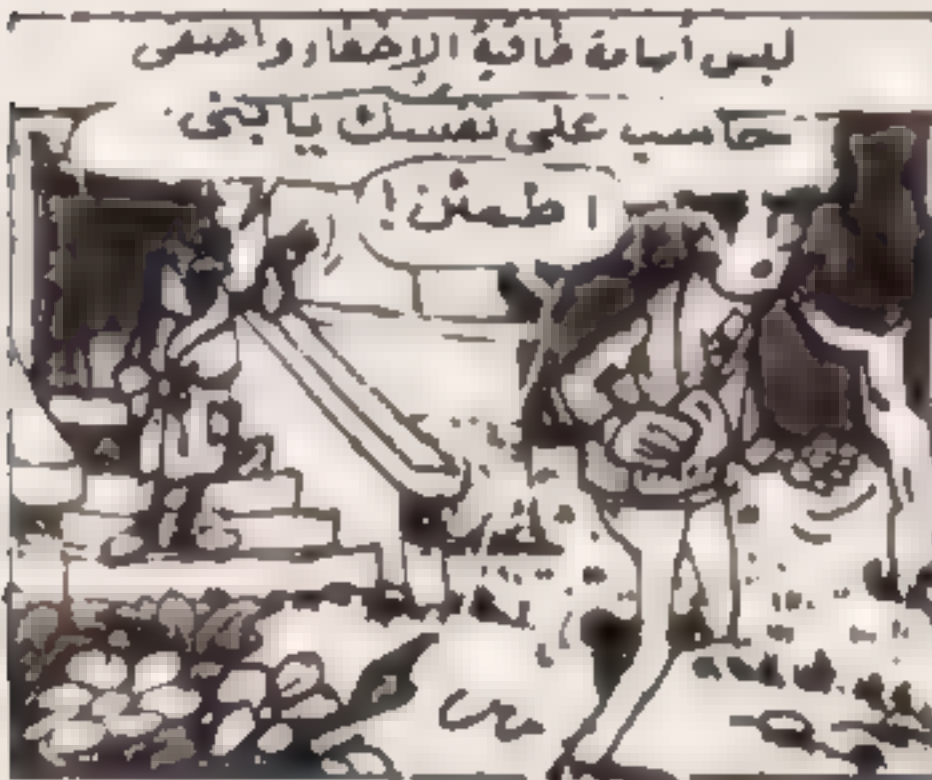 لبس أسامة طاقية الإخفاء واختفى
حاسب على نفسك يا بنى
اطمئن!